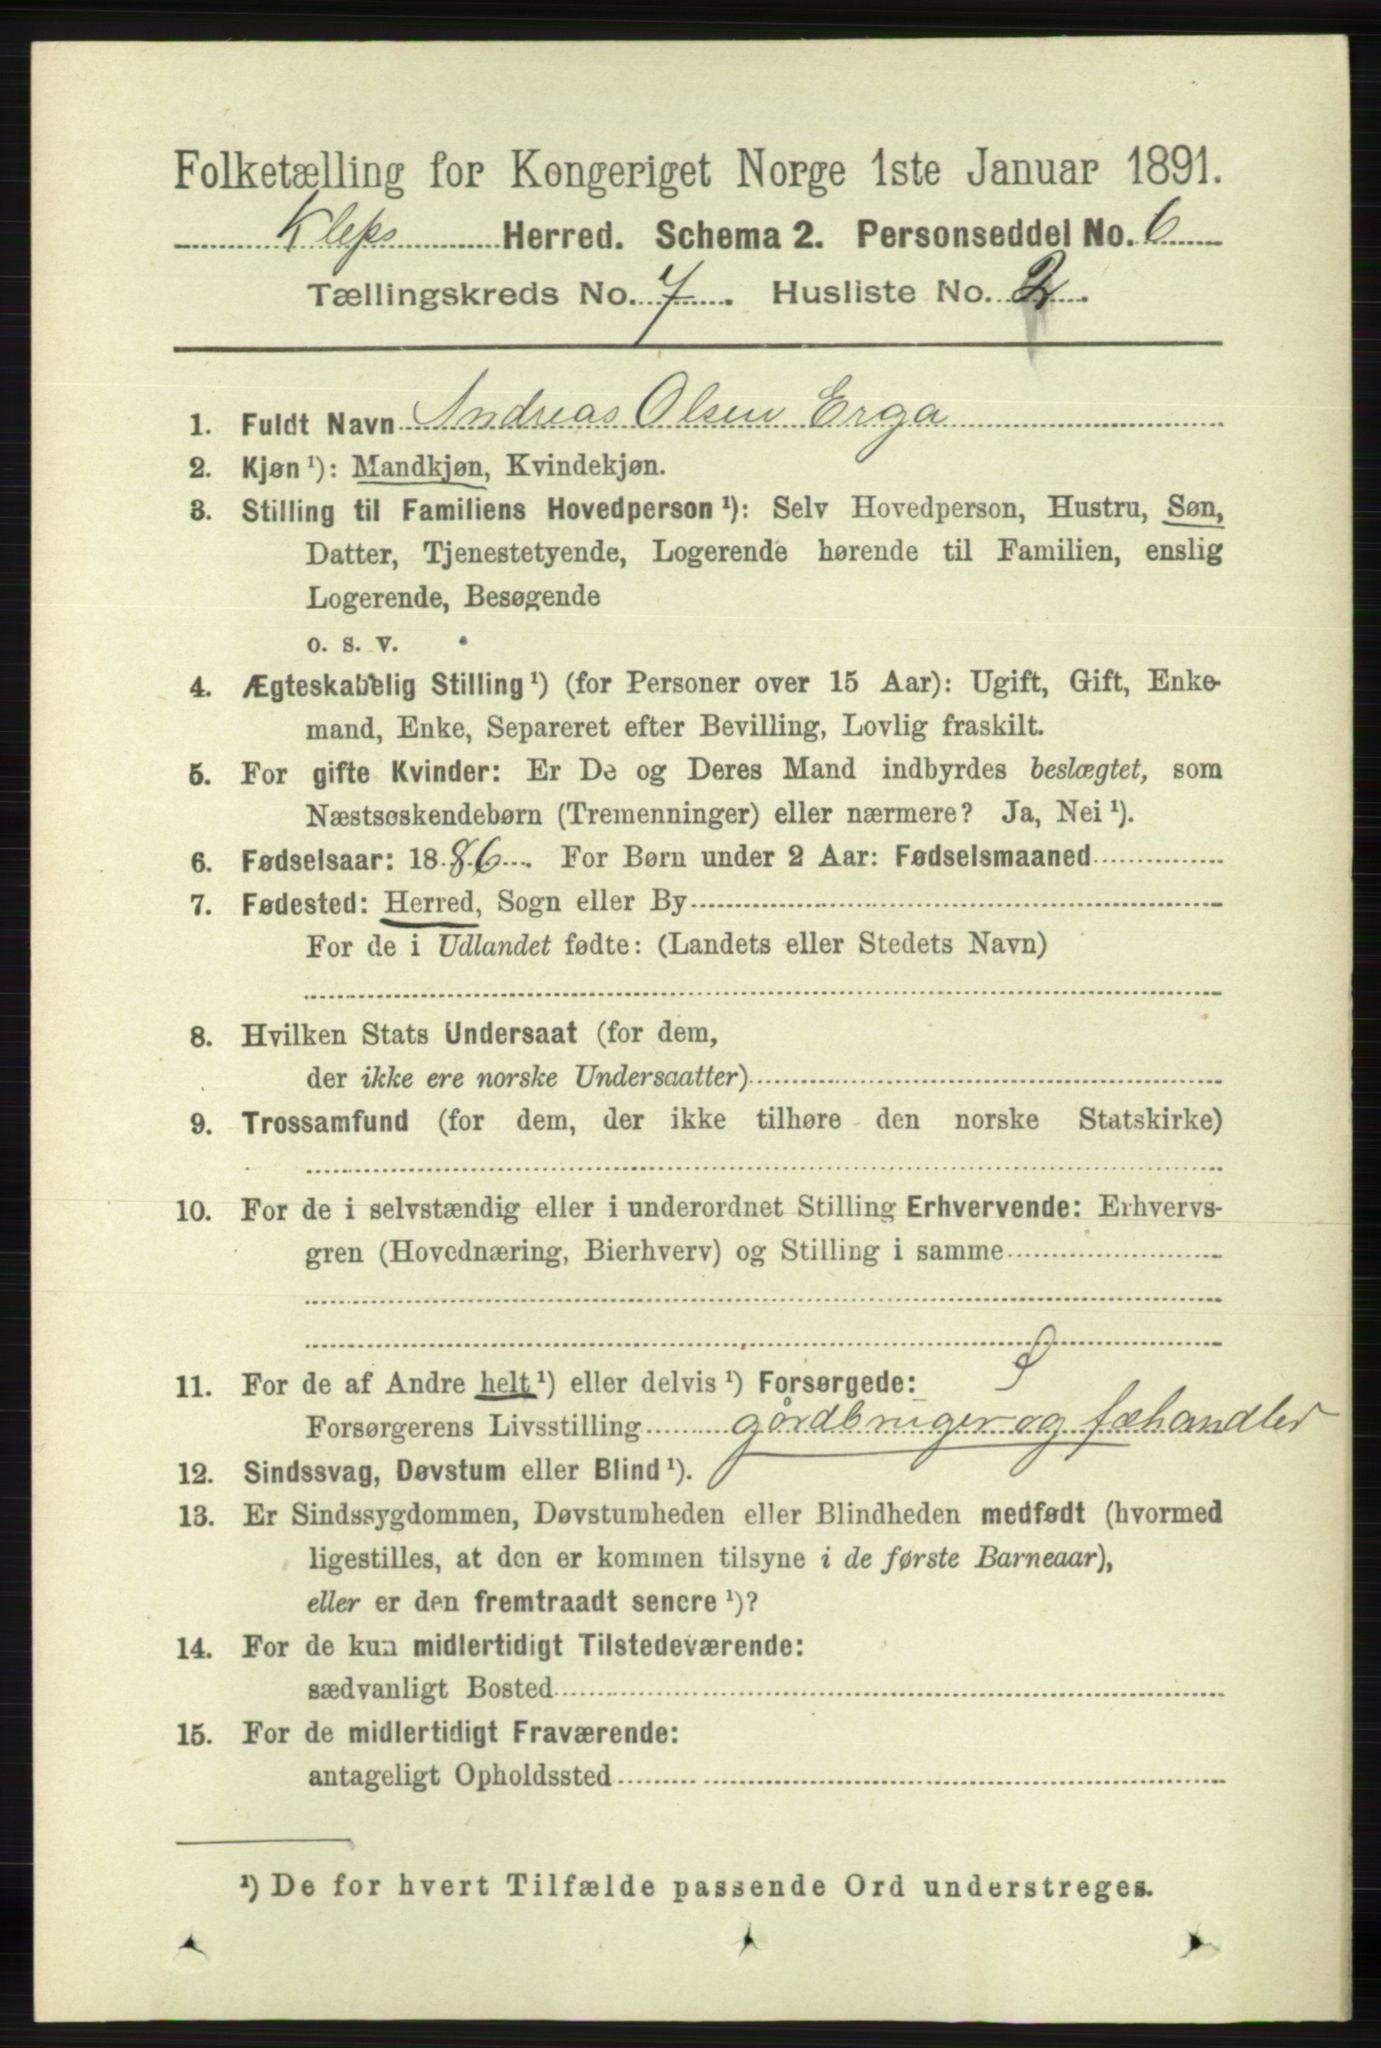 Folketælling for Kongeriget Norge 1ste Januar 1891.
Klepps Herred. Schema 2. Personseddel No. 6
Tællingskreds No. 7. Husliste No. 2.
1. Fuldt Navn Andreas Olsen Erga
2. Kjøn ¹): Mandkjøn, Kvindekjøn.
3. Stilling til Familiens Hovedperson ¹): Selv Hovedperson, Hustru, Søn,
Datter, Tjenestetyende, Logerende hørende til Familien, enslig
Logerende, Besøgende
o. s. v.
4. Ægteskabelig Stilling ¹) (for Personer over 15 Aar): Ugift, Gift, Enke-
mand, Enke, Separeret efter Bevilling, Lovlig fraskilt.
5. For gifte Kvinder: Er De og Deres Mand indbyrdes beslægtet, som
Næstsøskendebørn (Tremenninger) eller nærmere? Ja, Nei ¹).
6. Fødselsaar: 1886. For Børn under 2 Aar: Fødselsmaaned
7. Fødested: Herred, Sogn eller By
For de i Udlandet fødte: (Landets eller Stedets Navn)
8. Hvilken Stats Undersaat (for dem,
der ikke ere norske Undersaatter)
9. Trossamfund (for dem, der ikke tilhøre den norske Statskirke)
10. For de i selvstændig eller i underordnet Stilling Erhvervende: Erhvervs-
gren (Hovednæring, Bierhverv) og Stilling i samme
11. For de af Andre helt ¹) eller delvis ¹) Forsørgede:
Forsørgerens Livsstilling gårdbruger og fæhandler
12. Sindssvag, Døvstum eller Blind ¹).
13. Er Sindssygdommen, Døvstumheden eller Blindheden medfødt (hvormed
ligestilles, at den er kommen tilsyne i de første Barneaar),
eller er den fremtraadt senere ¹)?
14. For de kun midlertidigt Tilstedeværende:
sædvanligt Bosted
15. For de midlertidigt Fraværende:
antageligt Opholdssted
¹) De for hvert Tilfælde passende Ord understreges.